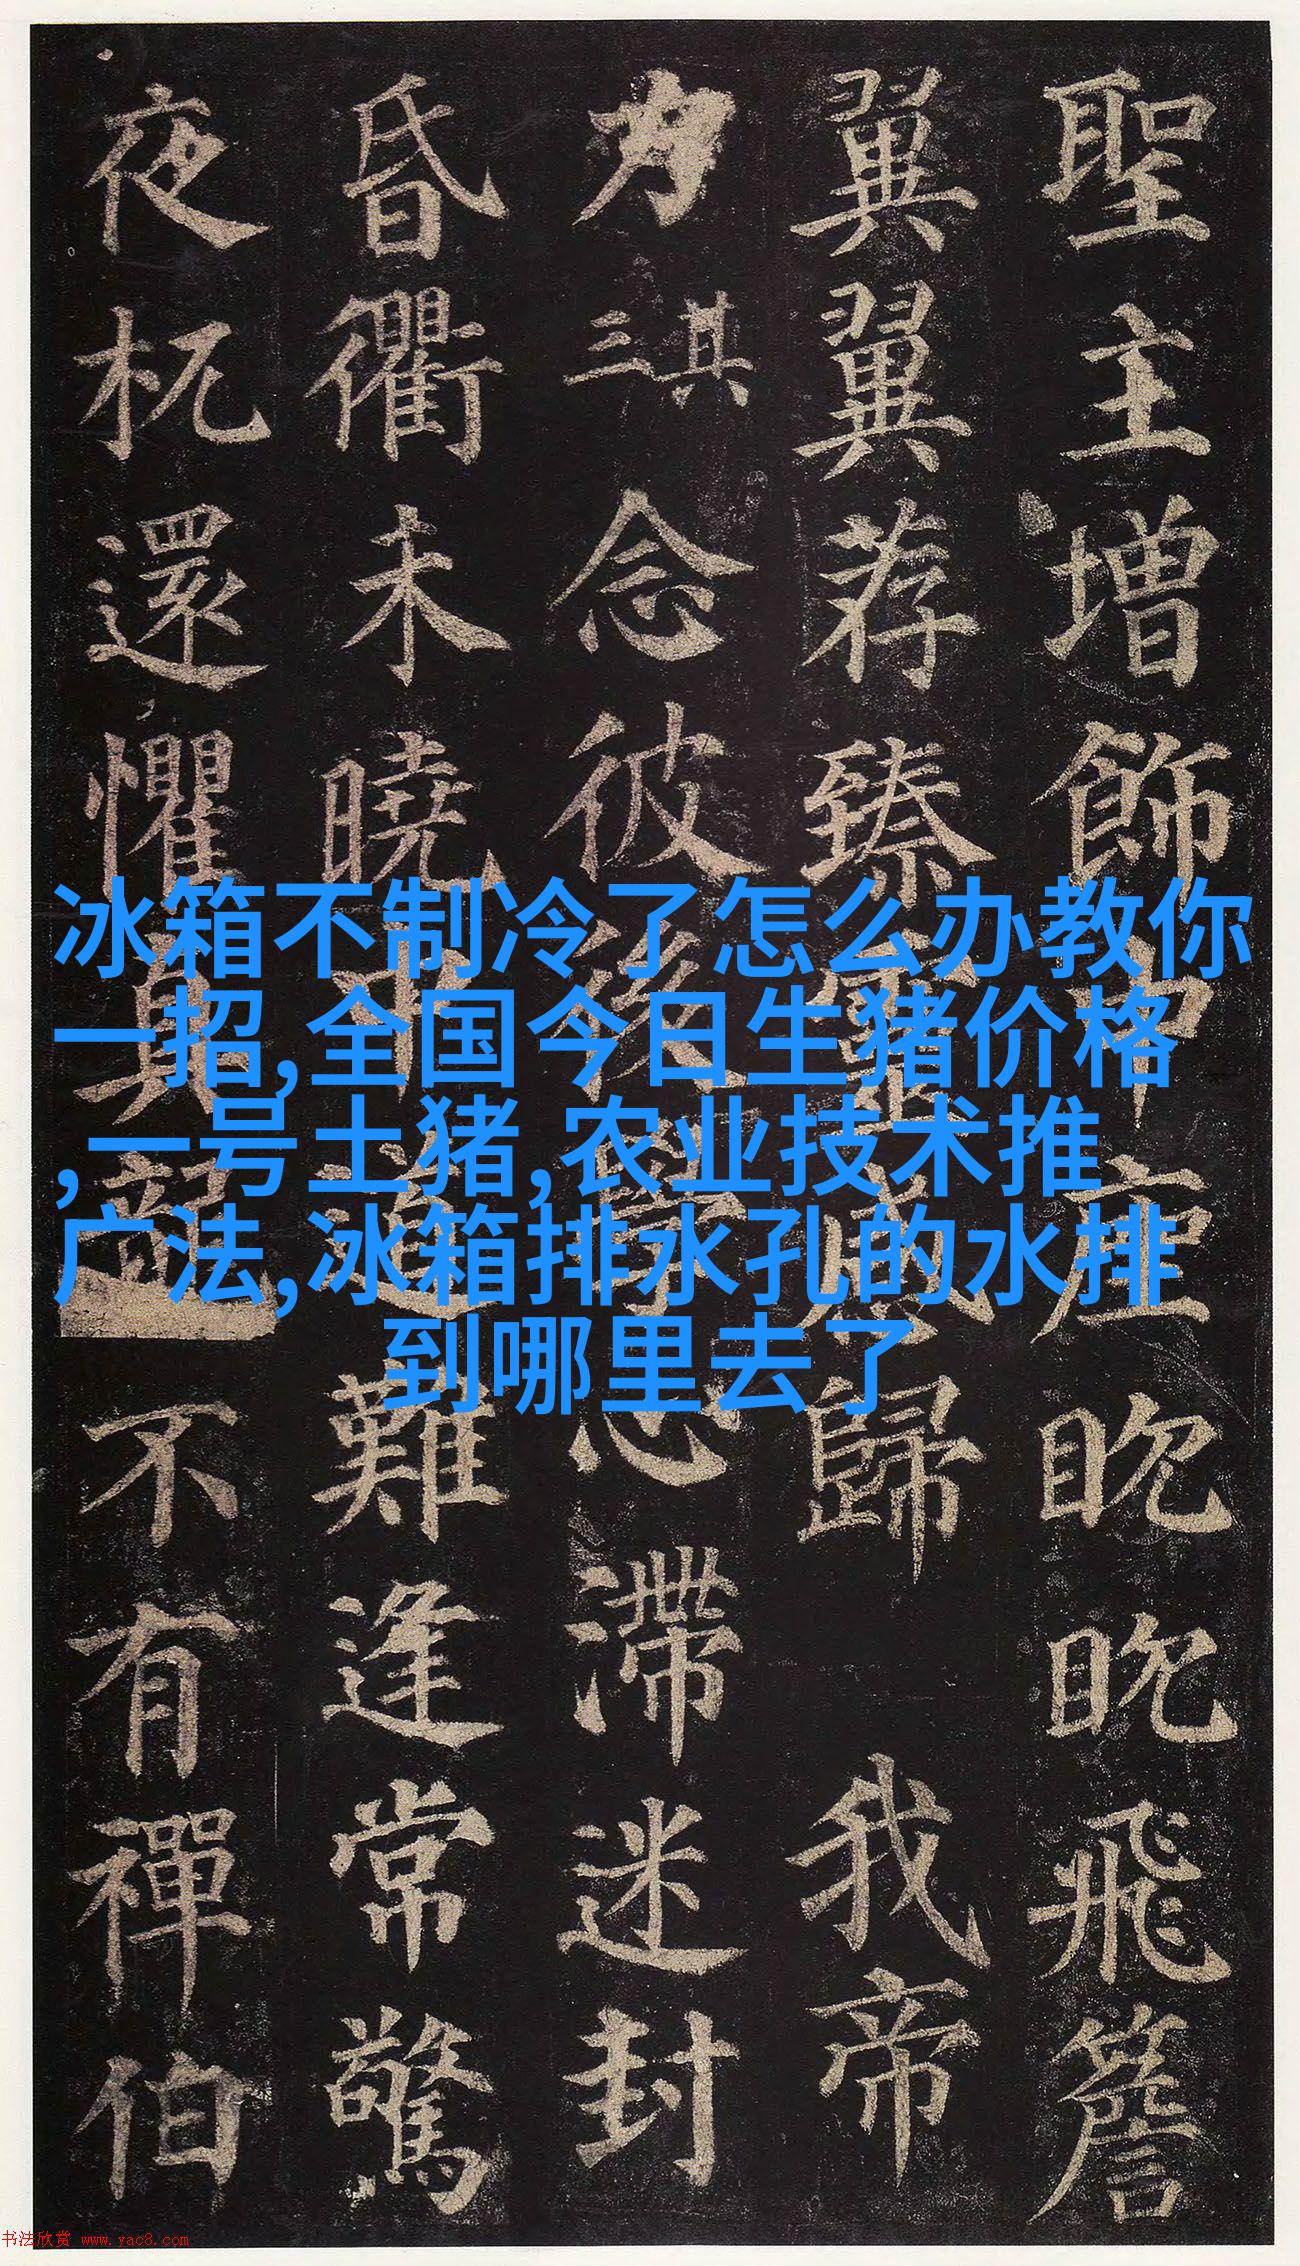 聖主增飾中座眈眈飛簷
翼翼荐臻靈感歸我帝
力其三念彼後學心滯迷封
昏衢未曉中道難逢常驚
夜杌還懼真龍不有禪伯
冰箱不制冷了怎么办教你
一招,全国今日生猪价格
,一号土猪,农业技术推
广法,冰箱排水孔的水排
到哪里去了
书法欣赏 www.yac8.com